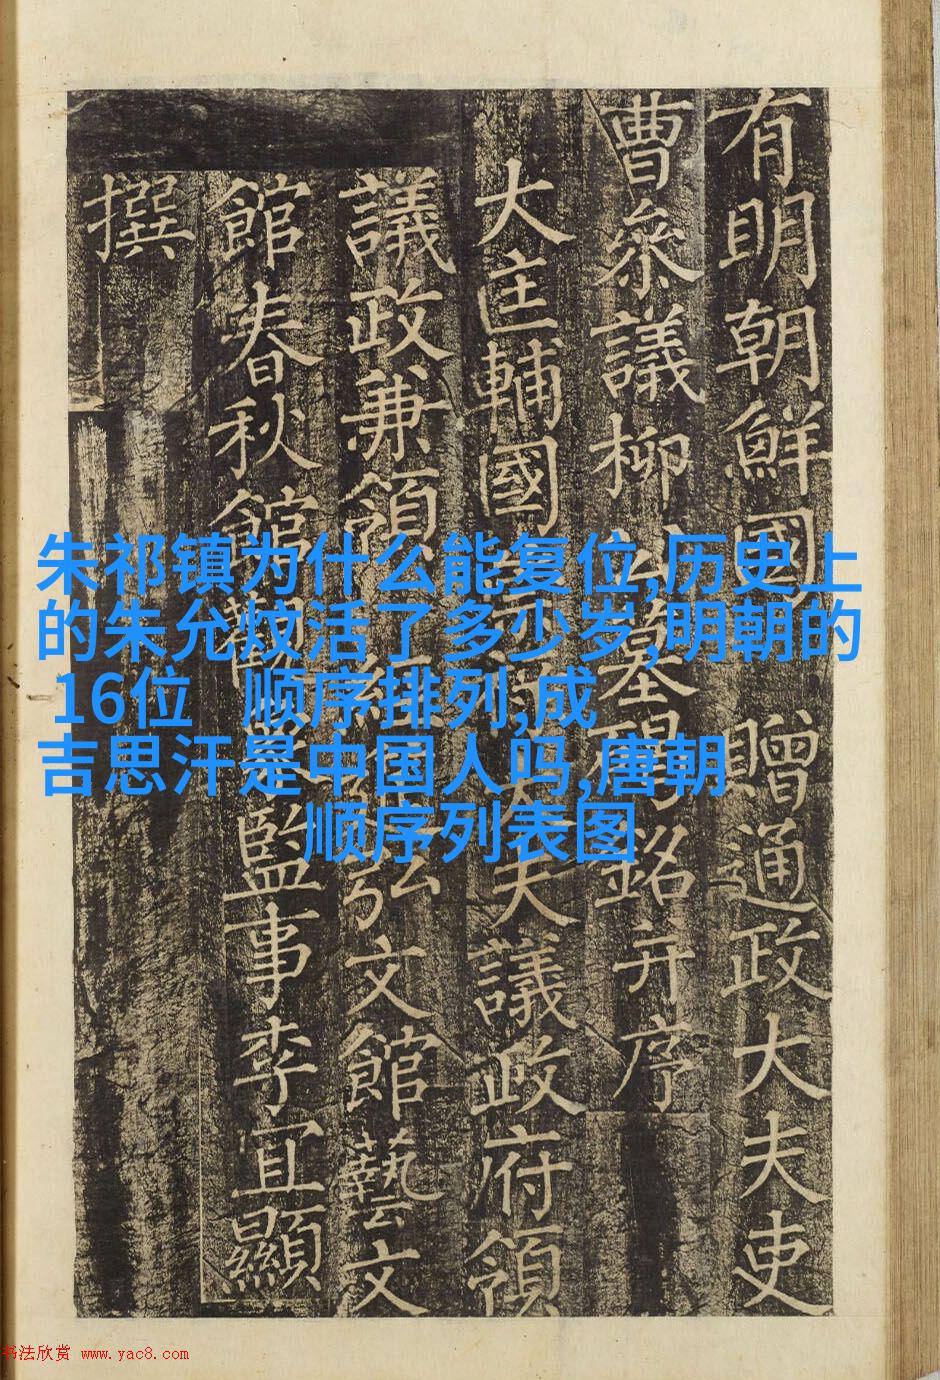 有明朝鮮國 贈通政大夫吏
曹叅議柳公墓碣銘并序
大匡輔國大夫議政府領
議政兼領經弘文館藝文
館春秋館觀監事李宜顯
撰
朱祁镇为什么能复位,历史上
的朱允炆活了多少岁,明朝的
16位 顺序排列,成
吉思汗是中国人吗,唐朝
顺序列表图
书法欣赏 www.yac8.com